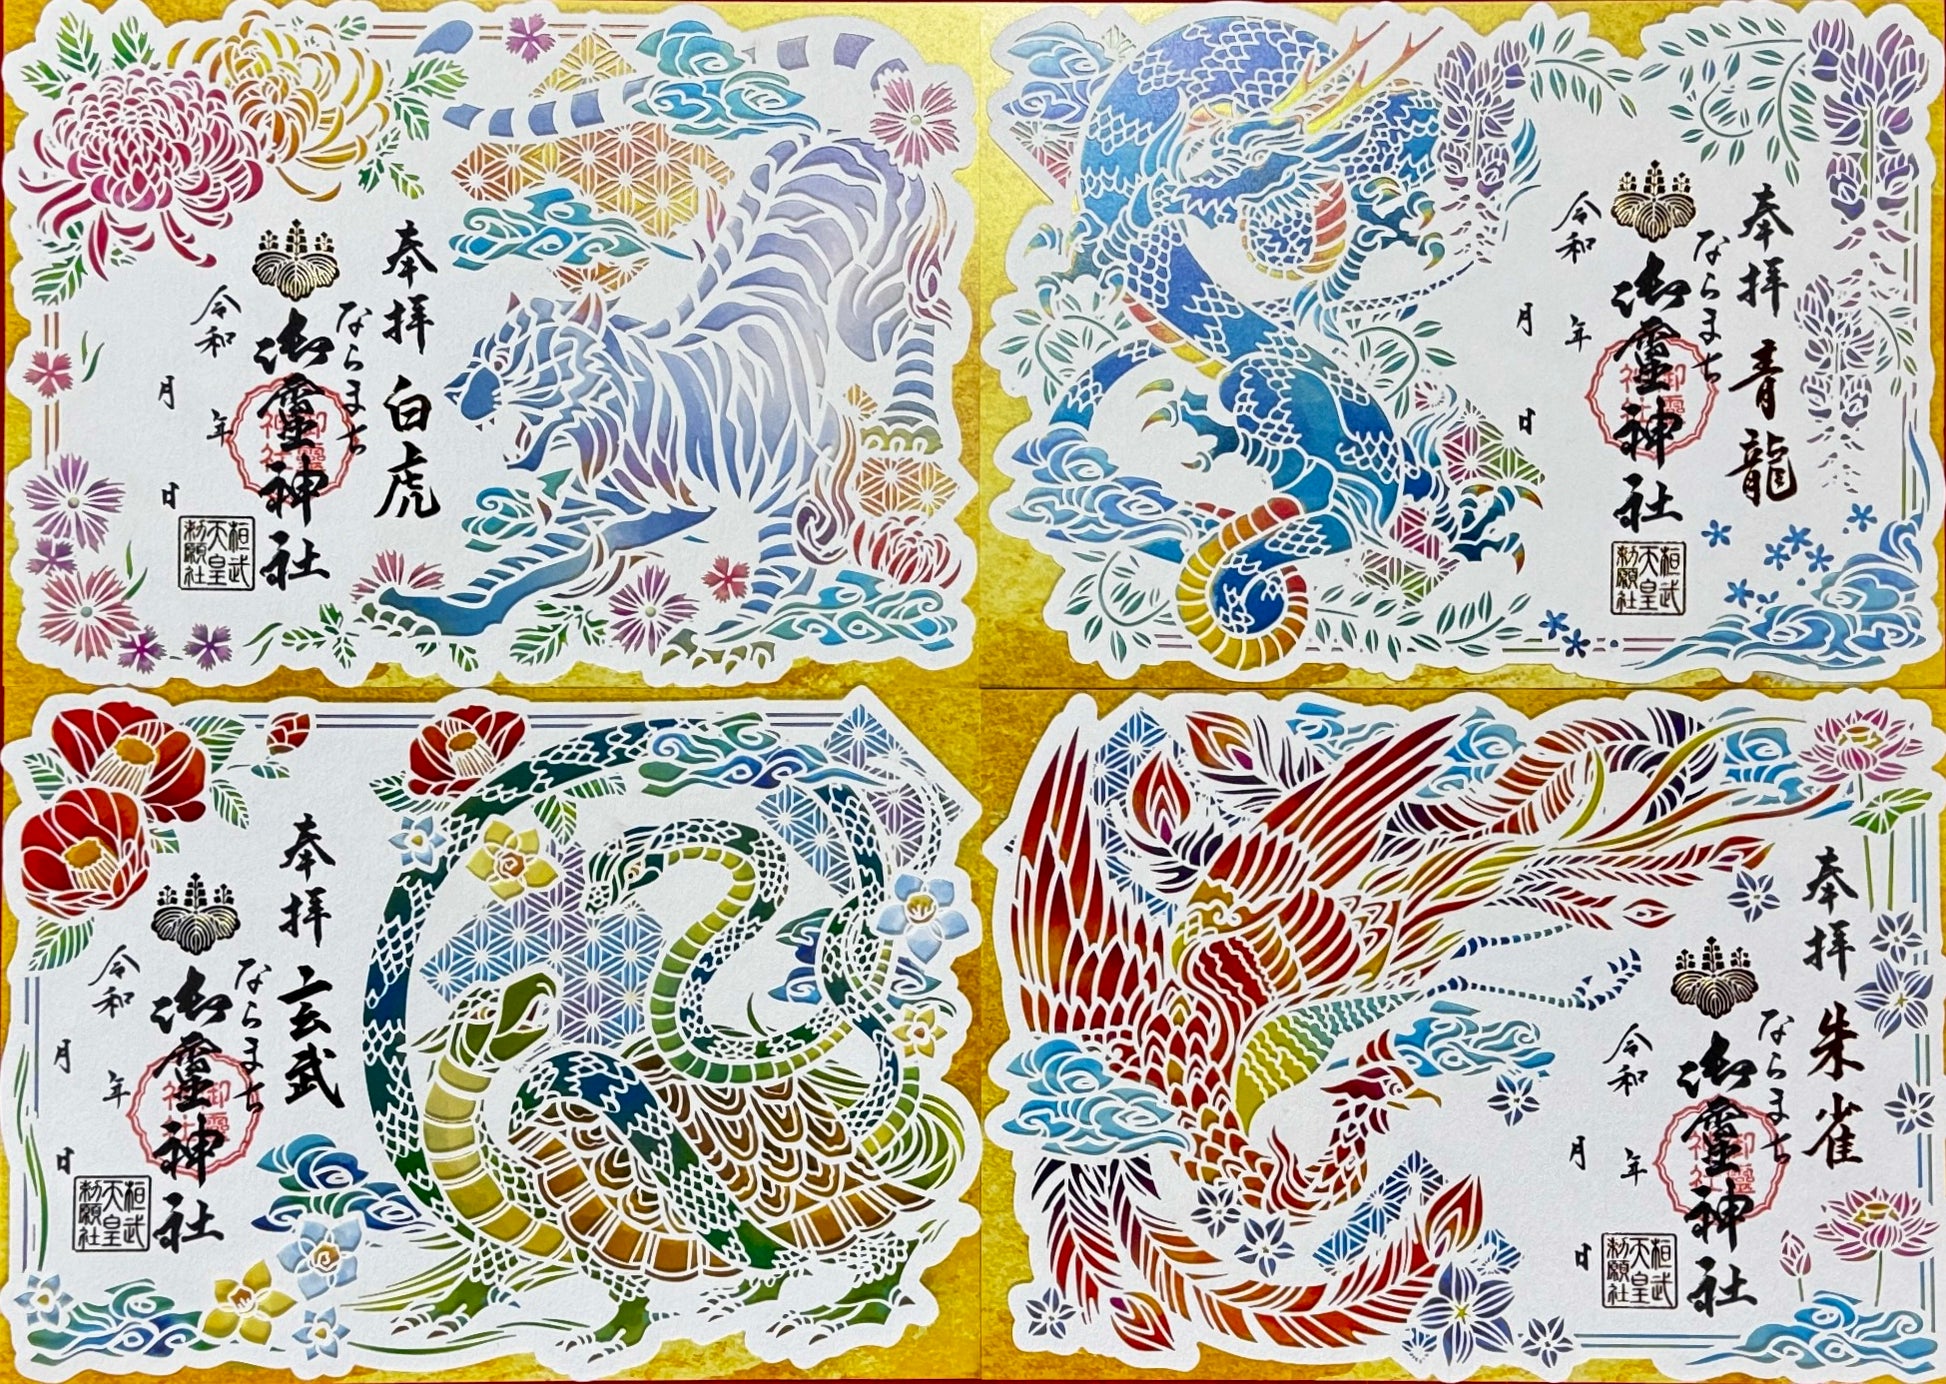 奉拝 白虎
ならまち
御霊神社
御霊神社
令和 年
月 日
桓武
天皇
勅願社
奉拝 青龍
ならまち
御霊神社
御霊神社
令和 年
月 日
桓武
天皇
勅願社
奉拝 玄武
ならまち
御霊神社
御霊神社
令和 年
月 日
桓武
天皇
勅願社
奉拝 朱雀
ならまち
御霊神社
御霊神社
令和 年
月 日
桓武
天皇
勅願社